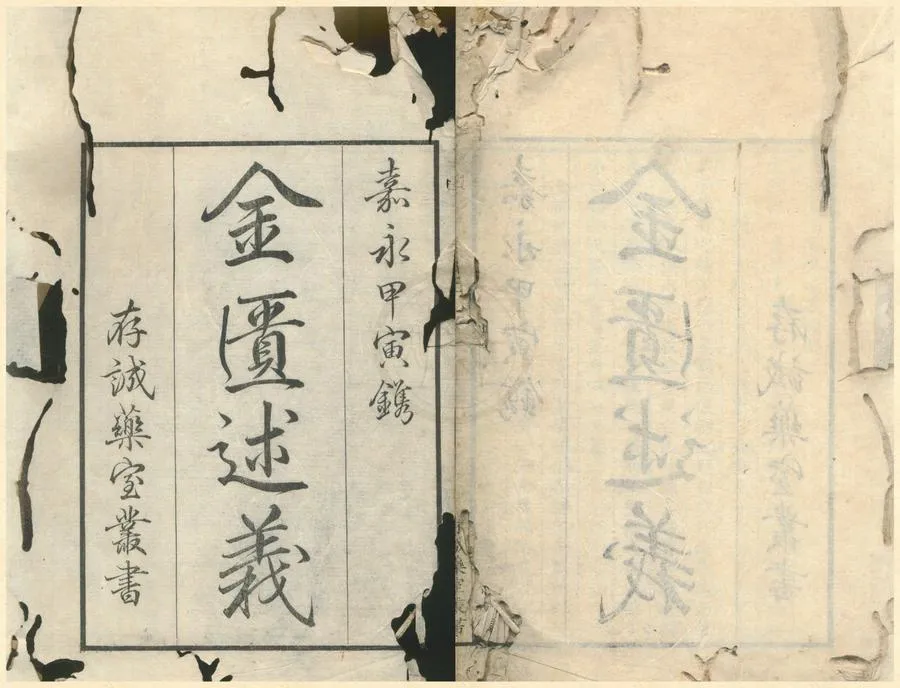 嘉永甲寅鐫
金匱述義
存誠藥室叢書